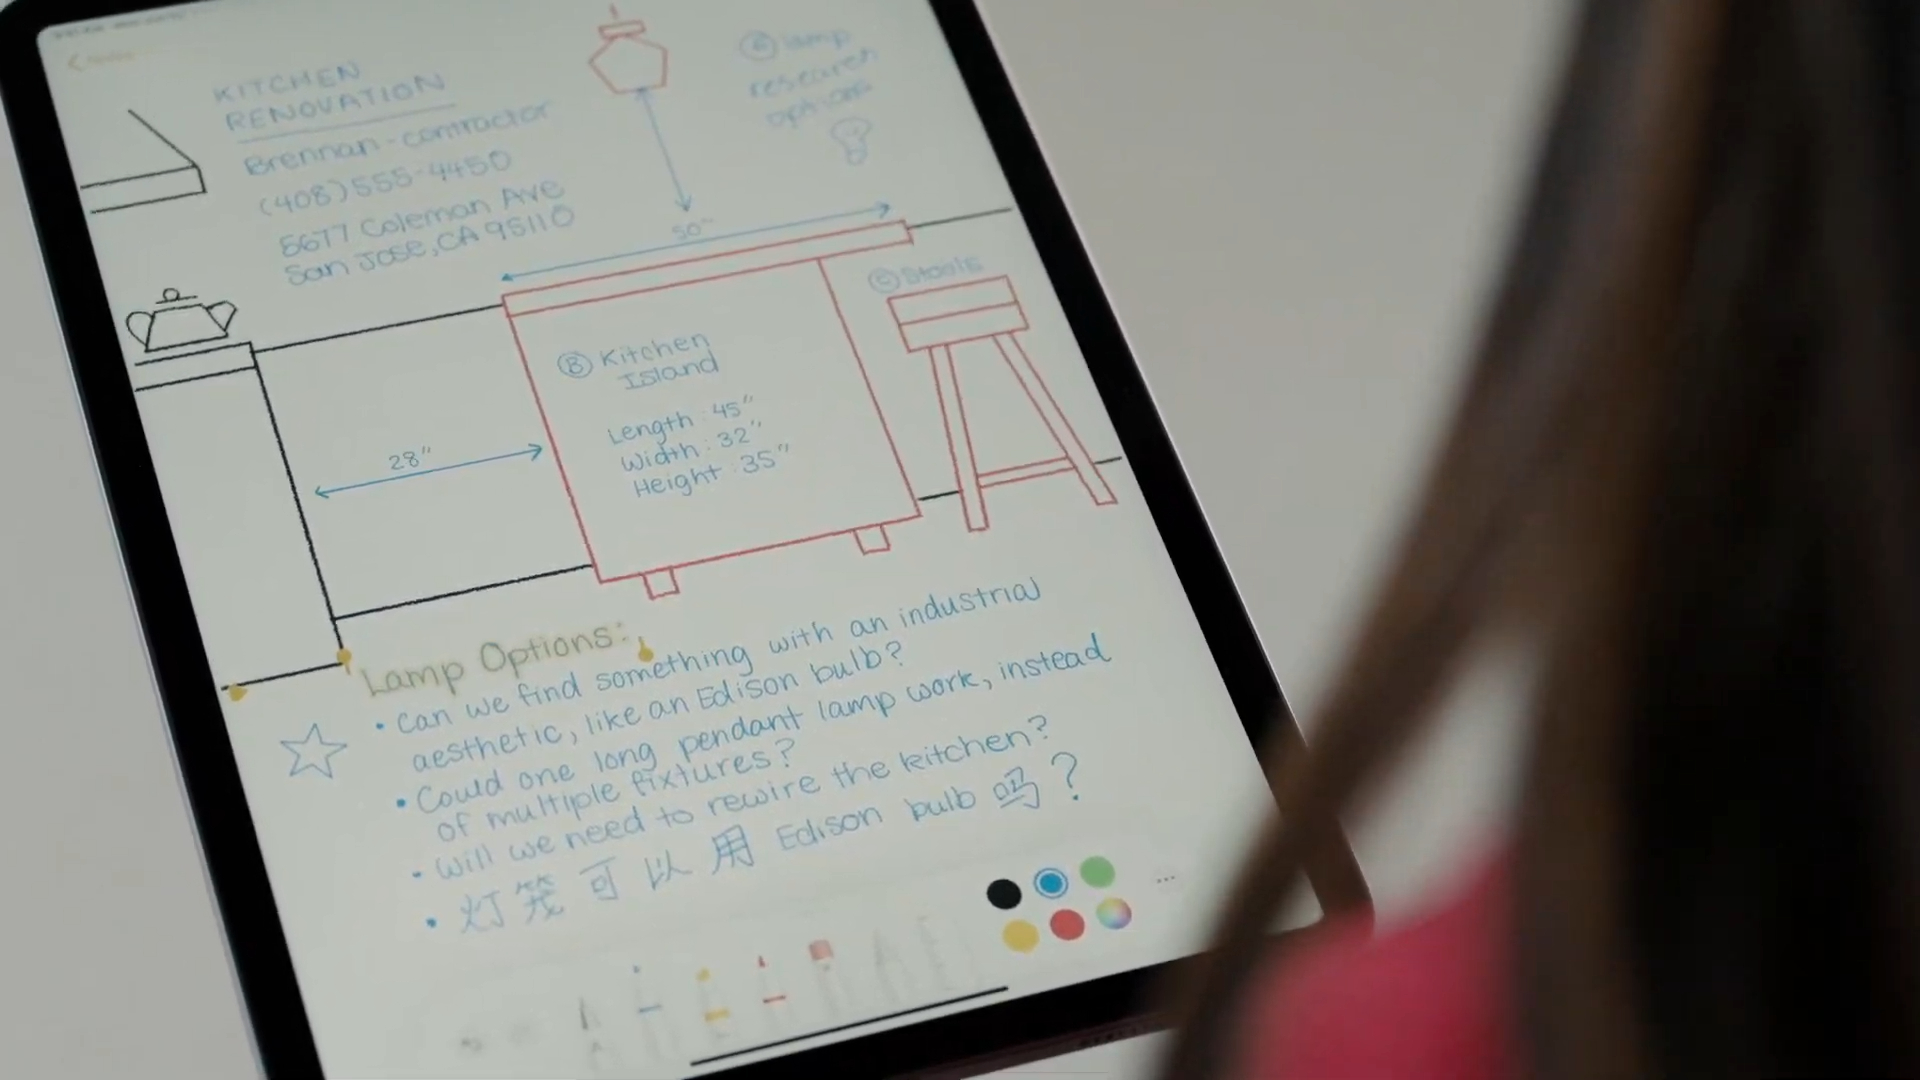 KITCHEN
RENOVATION
Brennan - contractor
(408) 555-4450
5677 Coleman Ave
San Jose, CA 95110
A lamp
research
options
50"
C Stools
B Kitchen
Island
Length : 45"
Width : 32"
Height : 35"
28"
Lamp Options:
• Can we find something with an industrial
aesthetic, like an Edison bulb?
• Could one long pendant lamp work, instead
of multiple fixtures?
• Will we need to rewire the kitchen?
• 灯笼可以用 Edison bulb 吗?